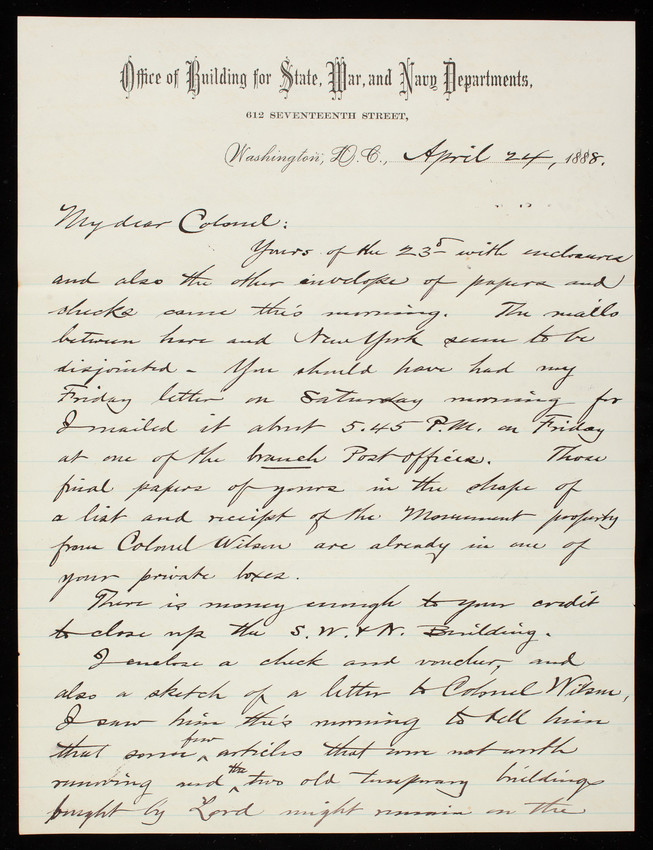 Office of Building for State, War, and Navy Departments,
612 SEVENTEENTH STREET,
Washington, D.C., April 24, 1888.
My dear Colonel:
Yours of the 23d with enclosures
and also the other envelope of papers and
checks came this morning. The mails
between here and New York seem to be
disjointed - You should have had my
Friday letter on Saturday morning for
I mailed it about 5.45 P.M. on Friday
at one of the branch Post offices. Those
final papers of yours in the shape of
a list and receipt of the Monument property
from Colonel Wilson are already in one of
your private boxes.
There is money enough to your credit
to close up the S. W. & N. Building.
I enclose a check and voucher, and
also a sketch of a letter to Colonel Wilson,
I saw him this morning to tell him
that some few articles that were not worth
removing and the two old temporary buildings
bought by Lord might remain on the